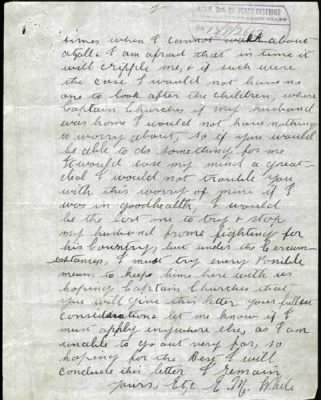 2
A.I.F. 3rd. M. STATE DISTRICT
times when I cannot walk about
atall & I am afraid that in time it
will cripple me, & if such were
the case I would not have no
one to look after the children, where
Captain Churches if my husband
was home I would not have nothing
to worry about, so if you would
be able to do something for me
It would ease my mind a great-
deal I would not trouble you
with this worry of mine if I
was in good health, I would
be the last one to try & stop
my husband from fighting for
his Country, but under the Circum-
-stances, I must try every Possible
means to keep him here with us
hoping Captain Churches that
you will give this letter your fullest
consideration let me know if I
must apply anywhere else, as I am
unable to go out very far, so
hoping for the Best I will
conclude this letter I remain
yours Etc E. M. White